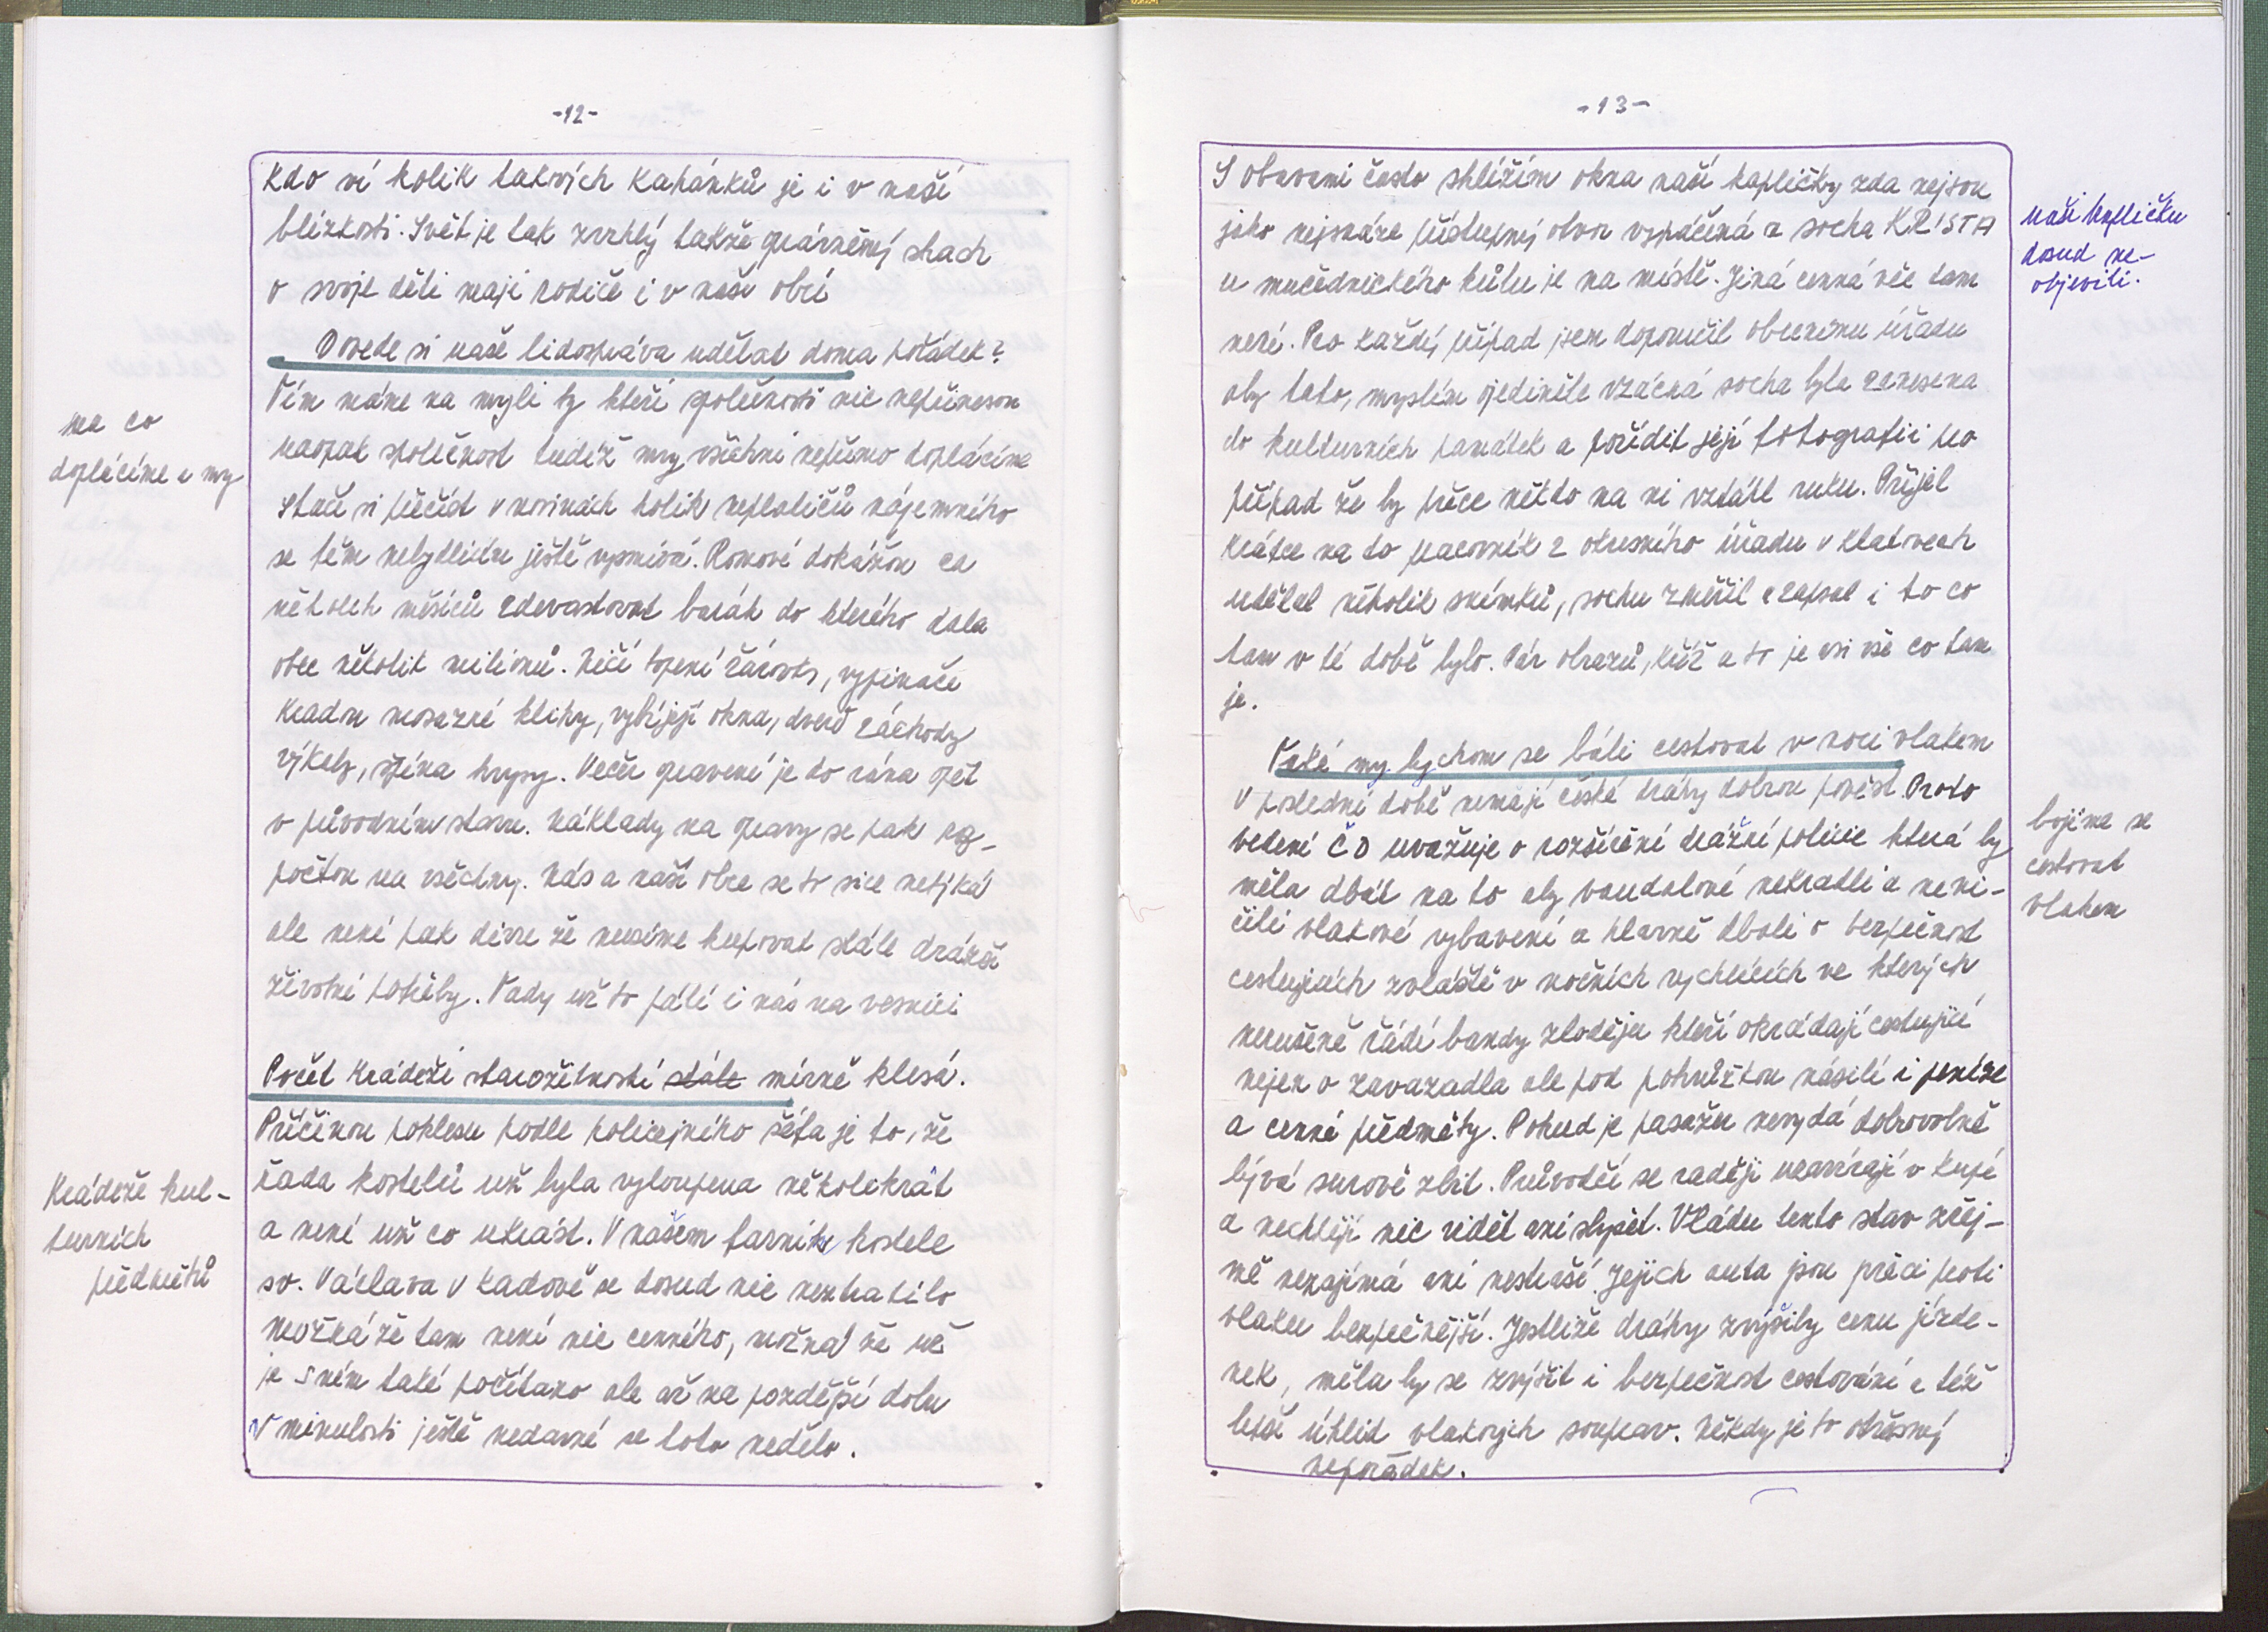 -12-
Kdo ví kolik takvých Kahánků je i v naší
blízkosti. Svět je tak zvrhlý takže oprávněný strach
o svoje děti mají rodiče i v naší obci
Dovede si naše lidospráva udělat doma pořádek?
Tím máme na mysli ty kteří společnosti nic nepřinesou
naopak společnost tudíž my všichni nepřímo doplácíme
na co
doplácíme i my
stačí si přečíst v novinách kolik neplatičů nájemního
se těm nebydlícím ještě vysmívá. Romové dokážou za
několik měsíců zdevastovat barák do kterého dala
obec několik miliónů. Ničí topení žárovky, vypínače
kradou mosazné kliky, vybíjejí okna, dveře záchody
výkaly, špína hnysy. Večer opravení je do rána opět
v původním stavu. Náklady na opravy se pak roz-
počtou na všechny. Nás a naší obce se to sice netýká
ale není pak divu že musíme kupovat stále dražší
životní potřeby. Tady už to pálí i nás na vesnici
Počet krádeží starožitností stále mírně klesá.
Příčinou poklesu podle policejního šéfa je to, že
řada kostelů už byla vyloupena několikrát
a není už co ukrást. V našem farním kostele
Krádeže kul-
turních
předmětů
sv. Václava v Kadově se dosud nic neztratilo
možná že tam není nic cenného, možná že už
je s ním také počítano ale až na pozdější dobu
V minulosti ještě nedavné se toto nedělo.
-13-
S obavami často shlížím okna naší kapličky zda nejsou
jako nejsnáze přístupný otvor vypáčená a socha KRISTA
u mučednického kůlu je na místě. Jiná cenná věc tam
naši kapličku
dosud ne-
objevili.
není. Pro každý případ jsem doporučil obecnímu úřadu
aby tato, myslím ojediněle vzácná socha byla zanesena
do kulturních památek a pořídit její fotografii pro
případ že by přece někdo na ni vztáhl ruku. Přijel
krátce na to pracovník z okresního úřadu v Klatovech
udělal několik snímků, sochu změřil a zapsal i to co
tam v té době bylo. Pár obrazů, kříž a to je asi vše co tam
je.
Také my bychom se báli cestovat v noci vlakem
V poslední době nemají české dráhy dobrou pověst. Proto
vedení ČD uvažuje o rozšíření drážní policie která by
bojíme se
cestovat
vlakem
měla dbát na to aby vandalové nekradli a neni-
čili vlakové vybavení a hlavně dbali o bezpečnost
cestujících zvláště v nočních rychlících ve kterých
nerušeně řádí bandy zlodějů kteří okrádají cestující
nejen o zavazadla ale pod pohrůžkou násilí i peníze
a cenné předměty. Pokud je pasažer nevydá dobrovolně
bývá surově zbit. Průvodčí se raději uzavírají v kupé
a nechtějí nic vidět ani slyšet. Vládu tento stav zřej-
mě nezajímá ani nestraší. Jejich auta jsou přeci proti
vlaku bezpečnější. Jestliže dráhy zvýšily cenu jízde-
nek, měla by se zvýšit i bezpečnost cestování a též
lepší úklid vlakových souprav. Někdy je to otřesný
nepořádek.